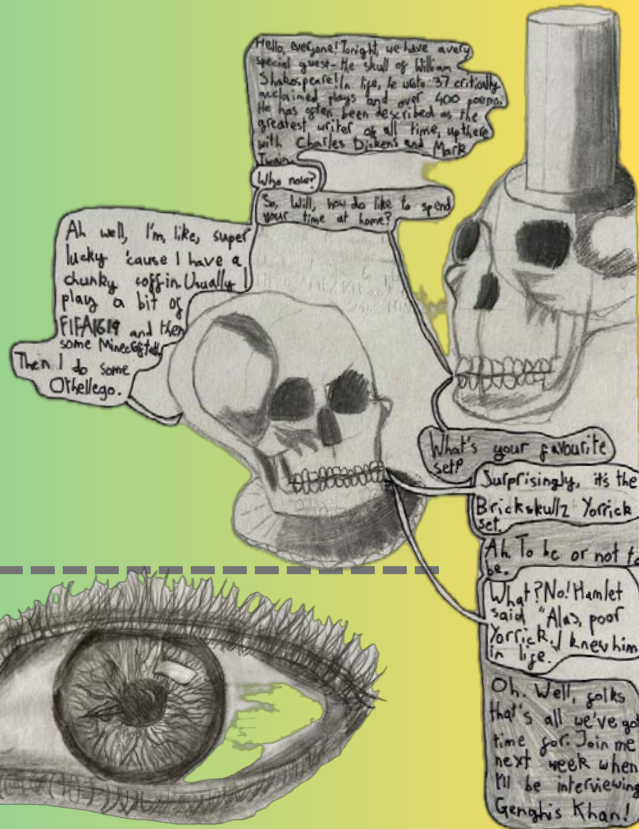 Hello, everyone! Tonight, we have a very
special guest - the skull of William
Shakespeare! In life, he wrote 37 critically
acclaimed plays and over 400 poems.
He has often been described as the
greatest writer of all time, up there
with Charles Dickens and Mark
Twain.
Who now?
So, Will, how do like to spend
your time at home?
Ah well, I'm, like, super
lucky 'cause I have a
chunky coffin. Usually I
play a bit of
and then
some
Then I do some
Othellego.
What's your favourite
set?
Surprisingly, it's the
Brickskullz Yorrick
set.
Ah. To be or not to
be.
What? No! Hamlet
said "Alas, poor
Yorrick, I knew him
in life.
Oh. Well, folks
that's all we've got
time for. Join me
next week when
I'll be interviewing
Genghis Khan!